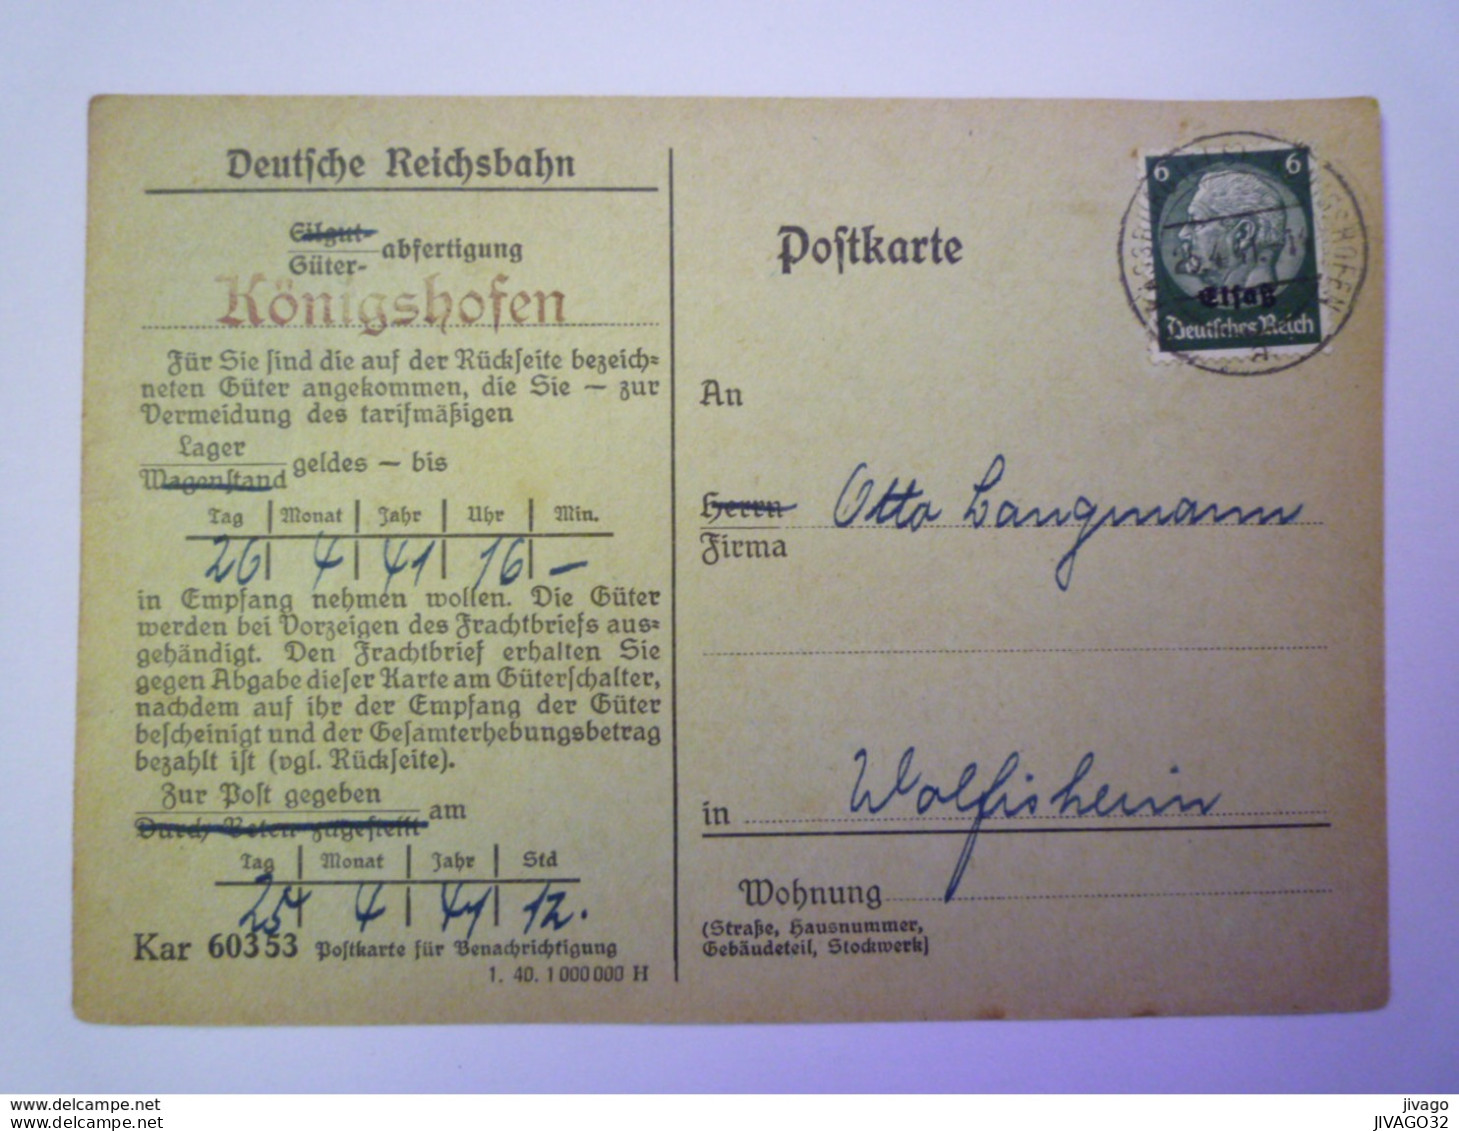 Deutsche Reichsbahn
Eilgut-
Güter-
abfertigung
Königshofen
Für Sie sind die auf der Rückseite bezeich-
neten Güter angekommen, die Sie — zur
Vermeidung des tarifmäßigen
Lager
Wagenstand
geldes — bis
Tag Monat Jahr Uhr Min.
26 4 41 16 —
in Empfang nehmen wollen. Die Güter
werden bei Vorzeigen des Frachtbriefs aus-
gehändigt. Den Frachtbrief erhalten Sie
gegen Abgabe dieser Karte am Güterschalter,
nachdem auf ihr der Empfang der Güter
bescheinigt und der Gesamterhebungsbetrag
bezahlt ist (vgl. Rückseite).
Zur Post gegeben
Durch Boten zugestellt
am
Tag Monat Jahr Std
25 4 41 12.
Kar 60353 Postkarte für Benachrichtigung
1. 40. 1000000 H
Postkarte
6 6
25.4.41
Elsaß
Deutsches Reich
A
An
Herrn
Firma
Otto Langmann
in Wolfisheim
Wohnung
(Straße, Hausnummer,
Gebäudeteil, Stockwerk)
jivago
JIVAGO32